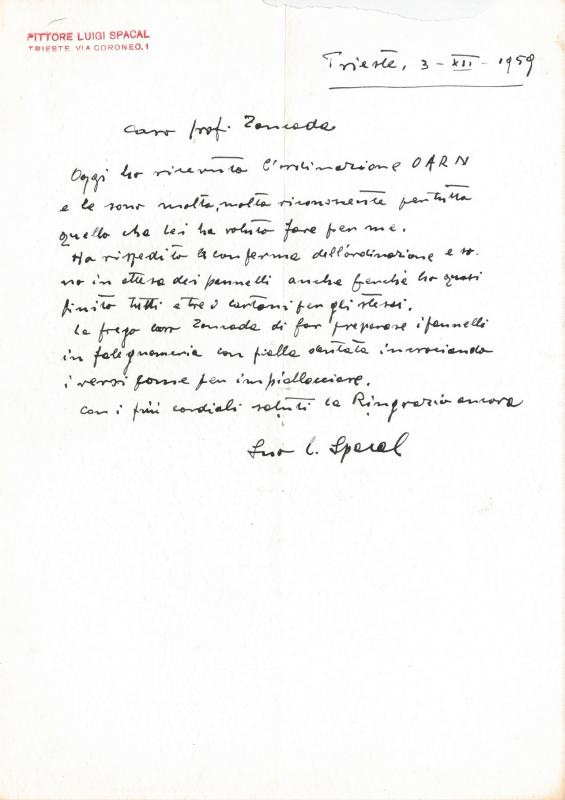 PITTORE LUIGI SPACAL
TRIESTE VIA CORONEO. 1
Trieste, 3 - XII - 1959
Caro prof. Zoncada
Oggi ho ricevuto l'ordinazione OARN
e le sono molto, molto riconoscente per tutto
quello che Lei ha voluto fare per me.
Ho rispedito la conferma dell'ordinazione e so.
no in attesa dei pannelli anche perchè ho quasi
finito tutti e tre i cartoni per gli stessi.
La prego caro Zoncada di far preparare i pannelli
in falegnameria con pialla dentata incrociando
i versi come per impiallacciare.
Con i più cordiali saluti La Ringrazio ancora
Suo L. Spacal